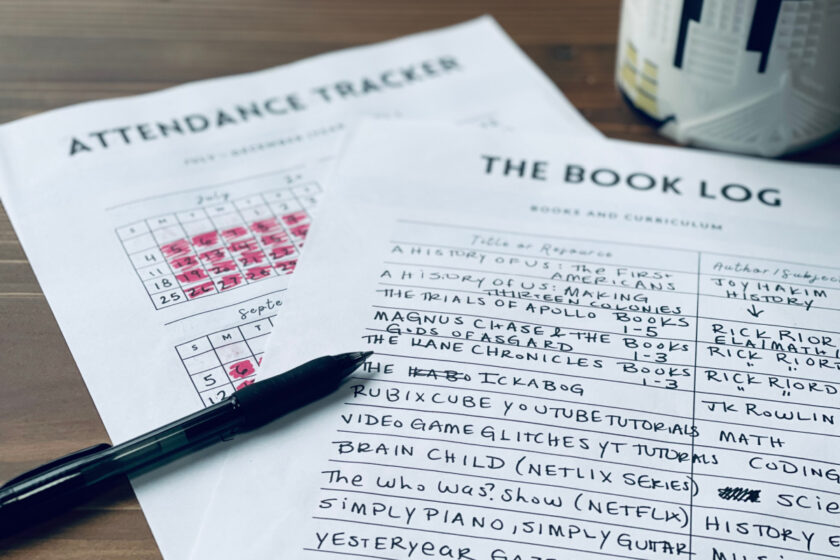 ATTENDANCE TRACKER
JULY - DECEMBER
July
S M T W T
4 5 6 7 8
11 12 13 14 15
18 19 20 21 22
25 26 27 28 29
Septe
S M T
5 6
12
THE BOOK LOG
BOOKS AND CURRICULUM
Title or Resource
Author/Subject
A HISTORY OF US: THE FIRST AMERICANS
JOY HAKIM
A HISTORY OF US: MAKING THIRTEEN COLONIES
HISTORY
↓
THE TRIALS OF APOLLO BOOKS 1-5
RICK RIOR
MAGNUS CHASE & THE GODS OF ASGARD BOOKS 1-3
RICK RIORD
THE KANE CHRONICLES BOOKS 1-3
RICK RIORD
THE ICKABOG
JK ROWLIN
RUBIXCUBE YOUTUBE TUTORIALS
MATH
VIDEO GAME GLITCHES YT TUTORIALS
CODING
BRAIN CHILD (NETLIX SERIES)
SCIE
The who was? Show (NETFLIX)
HISTORY
SIMPLY PIANO, SIMPLY GUITAR
YESTERYEAR